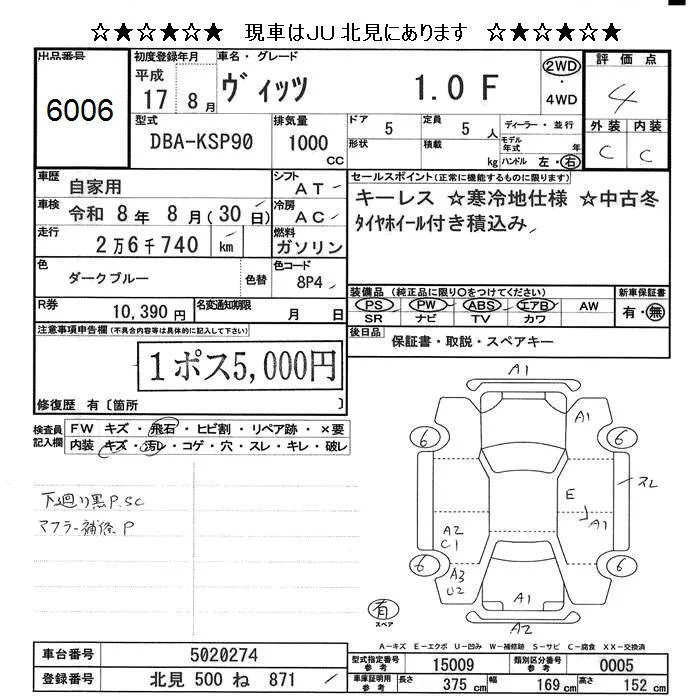 ☆★☆★☆★ 現車はJU北見にあります ☆★☆★☆★
出品番号
6006
初度登録年月
平成
17 8月
車名・グレード
ヴィッツ 1.0 F
2WD
・
4WD
評価点
4
外装 内装
C C
型式
DBA-KSP90
排気量
1000
CC
ドア 5
形状
定員 5 人
積載 kg
ディーラー・並行
モデル年式 年
ハンドル 左・右
車歴
自家用
シフト
AT
セールスポイント(正常に機能するものに限ります)
キーレス ☆寒冷地仕様 ☆中古冬
タイヤホイール付き積込み
車検
令和 8年 8月(30日)
冷房
AC
走行
2万6千740 km
燃料
ガソリン
色
ダークブルー
色替
色コード
8P4
装備品(純正品に限り○をつけてください)
PS・PW・ABS・エアB・AW
SR ナビ TV カワ
新車保証書
有・無
R券
10,390円
名変通知期限
月 日
後日品
保証書・取説・スペアキー
注意事項申告欄(不具合内容等は具体的に記入して下さい)
1ポス5,000円
修復歴 有〔箇所 〕
検査員
記入欄
FW キズ・飛石・ヒビ割・リペア跡・×要
内装 キズ・汚レ・コゲ・穴・スレ・キレ・破レ
下廻り黒P.SC
マフラー補修P
A1
A1
6
6
スレ
E
A1
A2
C1
A3
U2
6
6
A1
A2
有
スペア
A-キズ E-エクボ U-凹み W-補修跡 S-サビ C-腐食 XX-交換済
車台番号
5020274
登録番号
北見 500 ね 871
型式指定番号
参考
15009
類別区分番号
参考
0005
車庫証明用
参考
長さ 375 cm
幅 169 cm
高さ 152 cm